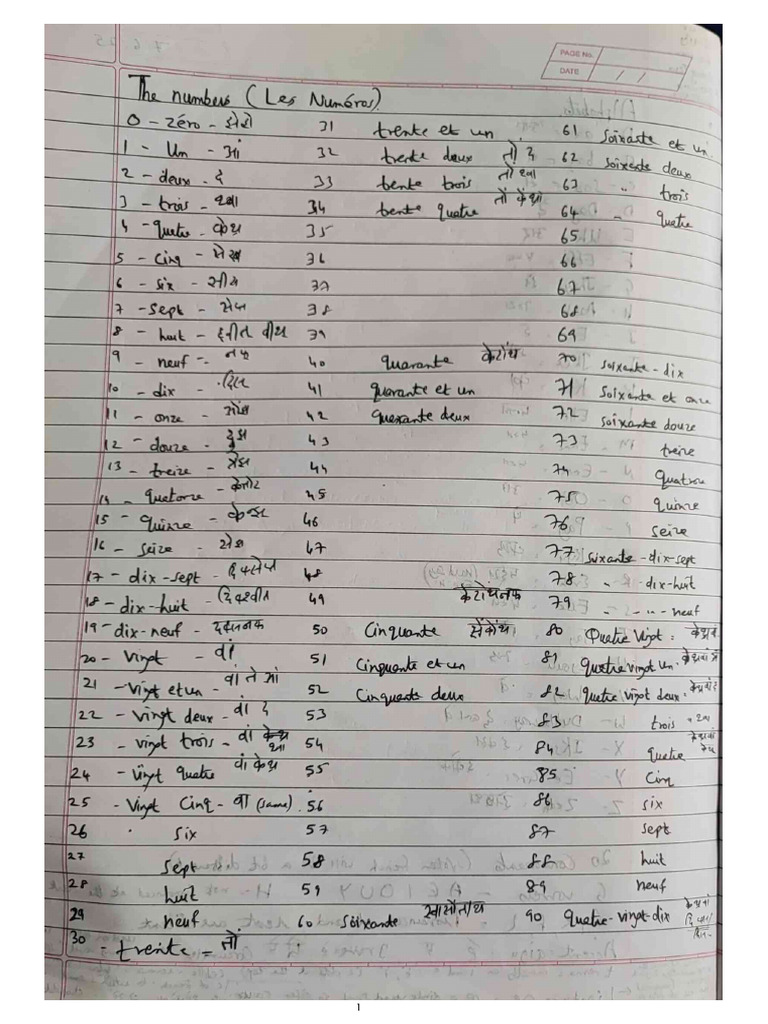 PAGE No.
DATE / /
The numbers (Les Numéros)
0 - zéro - झेरो 31 trente et un 61 soixante et un
1 - Un - आं 32 trente deux तों द 62 soixente deux
2 - deux - द 33 tente trois तों थ्वा 63 " trois
3 - trois - थ्वा 34 tente quatre तों केथ्रा 64 " quatre
4 - quatre - केथ्र 35 65
5 - Cinq - 36 66
6 - six - सीस 37 67
7 - sept - सेप्त 38 68
8 - huit - 39 69
9 - neuf - नफ 40 quarante केरांथ 70 soixante-dix
10 - dix - दिस 41 quarante et un 71 soixante et onze
11 - onze - ओंझ 42 quarante deux 72 soixante douze
12 - douze - दुझ 43 73 treize
13 - treize - त्रेझ 44 74
14 - quatorze - केतोर्झ 45 75 quinze
15 - quinze - 46 76 seize
16 - seize - सेझ 47 77 suixante-dix-sept
17 - dix-sept - दिससेप्त 48 78 " dix-huit
18 - dix-huit - 49 79 - " - neuf
19 - dix-neuf - 50 Cinquante 80 Quatre Vingt =
20 - Vingt - वां 51 Cinquante et un 81 quatre vingt un -
21 - Vingt et un - वां ते आं 52 Cinquante deux 82 quatre vingt deux -
22 - Vingt deux - वां द 53 83 trois = थ्वा
23 - Vingt trois - वां थ्वा 54 84 quatre
24 - Vingt quatre वां केथ्र 55 85 Cinq
25 - Vingt Cinq - वा (same) 56 86 six
26 six 57 87 sept
27 sept 58 88 huit
28 huit 59 89 neuf
29 neuf 60 Soixante 90 Quatre-vingt-dix
30 - trente = तों
1